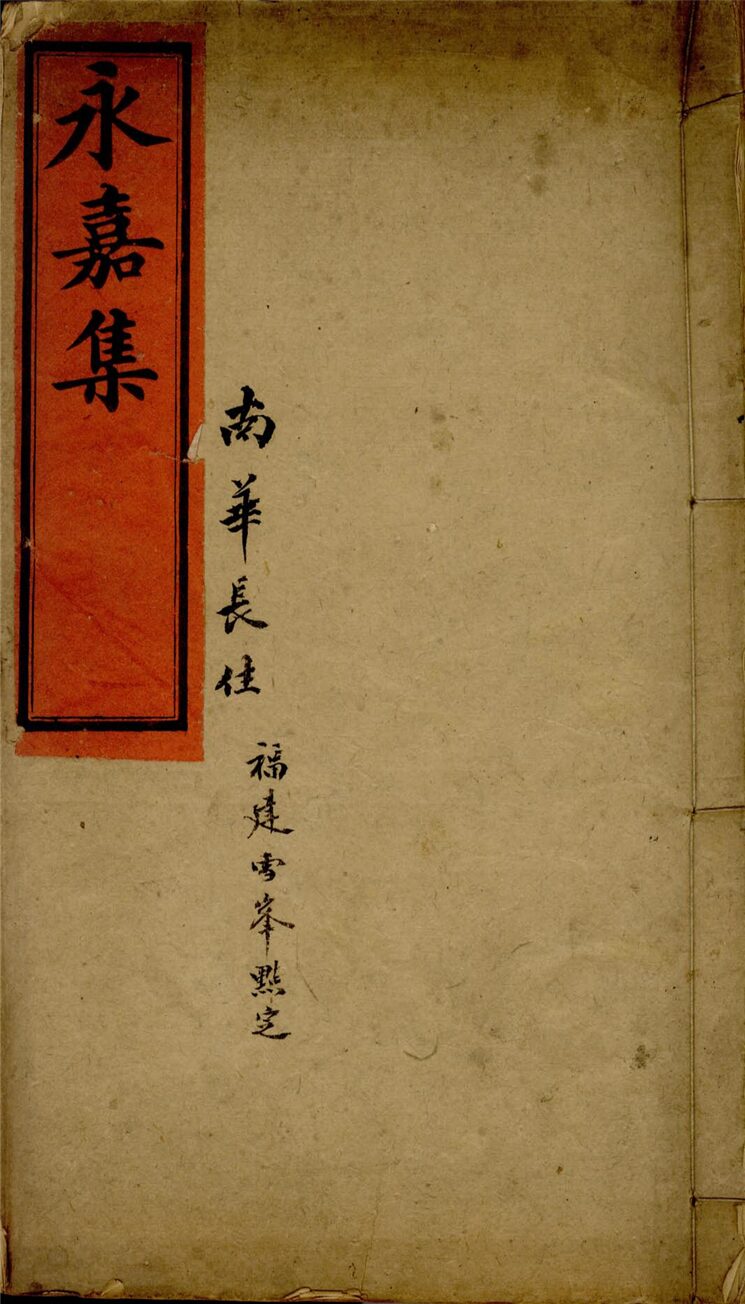 永嘉集
南華長住
福建雪峯點定